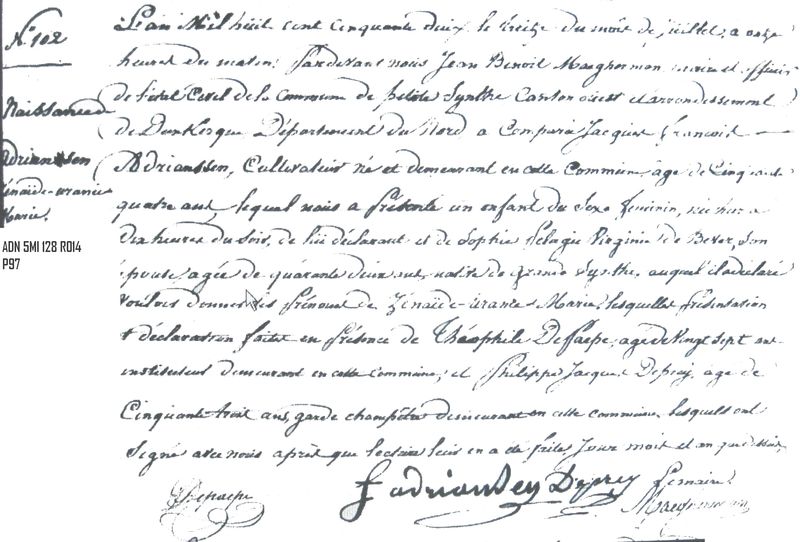 N° 102
Naissance
Adrianssen
Zénaïde-uranie
Marie.
ADN 5MI 128 R014
P97
L'an Mil huit cent cinquante deux le treize du mois de juillet, a onze
heures du matin; Pardevant nous Jean Benoit Maegherman maire et officier
de l'état Civil de la Commune de petite Synthe Canton ouest et arrondissement
de Dunkerque Département du Nord a Comparu Jacques francois
Adrianssen, Cultivateur né et demeurant en cette Commune, âgé de Cinquante
quatre ans, lequel nous a présenté un enfant du Sexe féminin, né hier a
dix heures du soir, de lui déclarant et de Sophie Pélagie Virginie de Bever, son
épouse agée de quarante deux ans, native de grande Synthe, auquel il a déclaré
vouloir donner les prénoms de Zénaïde-uranie Marie; lesquelles présentation
et déclaration faites en présence de Théophile Depaepe, age de vingt sept ans
instituteur demeurant en cette commune; et Philippe Jacques Deprey, age de
Cinquante trois ans, garde champêtre demeurant en cette commune, lesquels ont
Signé avec nous après que lecture leur en a été faite, Jour mois et an que dessus,
Depaepe
f adrianssen
Deprey
Le maire
Maegherman